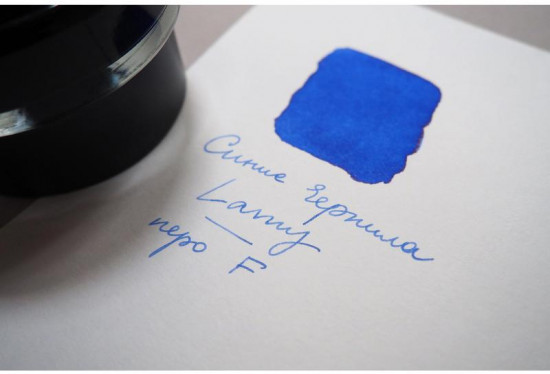 Синие Чернила
Lamy
перо F